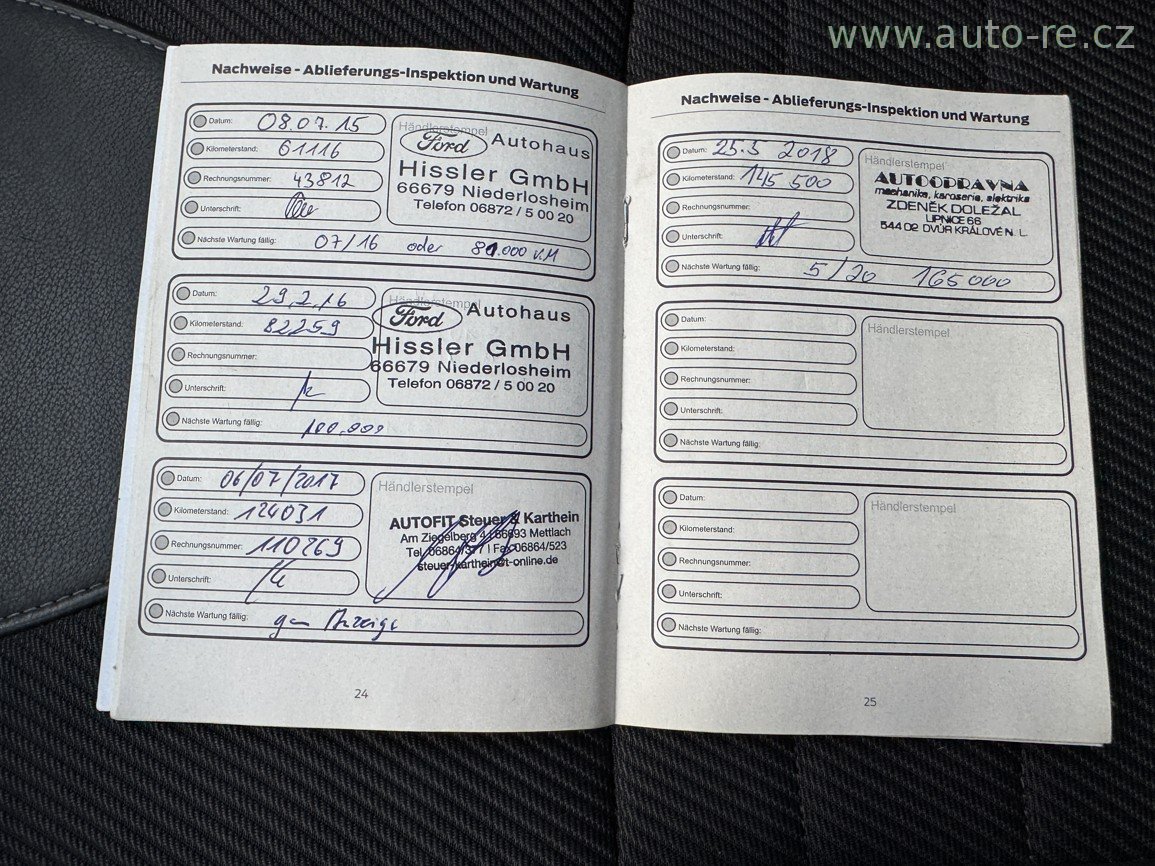 www.auto-re.cz
Nachweise - Ablieferungs-Inspektion und Wartung
Datum: 08.07.15
Kilometerstand: 61116
Rechnungsnummer: 43812
Unterschrift:
Nächste Wartung fällig: 07/16 oder 81.000 KM
Händlerstempel
Ford Autohaus
Hissler GmbH
66679 Niederlosheim
Telefon 06872 / 5 00 20
Datum: 29.2.16
Kilometerstand: 82259
Rechnungsnummer:
Unterschrift:
Nächste Wartung fällig: 100.000
Händlerstempel
Ford Autohaus
Hissler GmbH
66679 Niederlosheim
Telefon 06872 / 5 00 20
Datum: 06/07/2017
Kilometerstand: 124031
Rechnungsnummer: 110269
Unterschrift:
Nächste Wartung fällig: gem Anzeige
Händlerstempel
AUTOFIT Steuer & Karthein
Am Ziegelberg 4 | 66693 Mettlach
Tel. 06864/ | Fax 06864/523
steuer-karthein@t-online.de
24
Nachweise - Ablieferungs-Inspektion und Wartung
Datum: 25.5 2018
Kilometerstand: 145 500
Rechnungsnummer:
Unterschrift:
Nächste Wartung fällig: 5/20 165 000
Händlerstempel
AUTOOPRAVNA
mechanika, karoserie, elektrika
ZDENĚK DOLEŽAL
LIPNICE 66
544 02 DVŮR KRÁLOVÉ N. L.
Datum:
Kilometerstand:
Rechnungsnummer:
Unterschrift:
Nächste Wartung fällig:
Händlerstempel
Datum:
Kilometerstand:
Rechnungsnummer:
Unterschrift:
Nächste Wartung fällig:
Händlerstempel
25